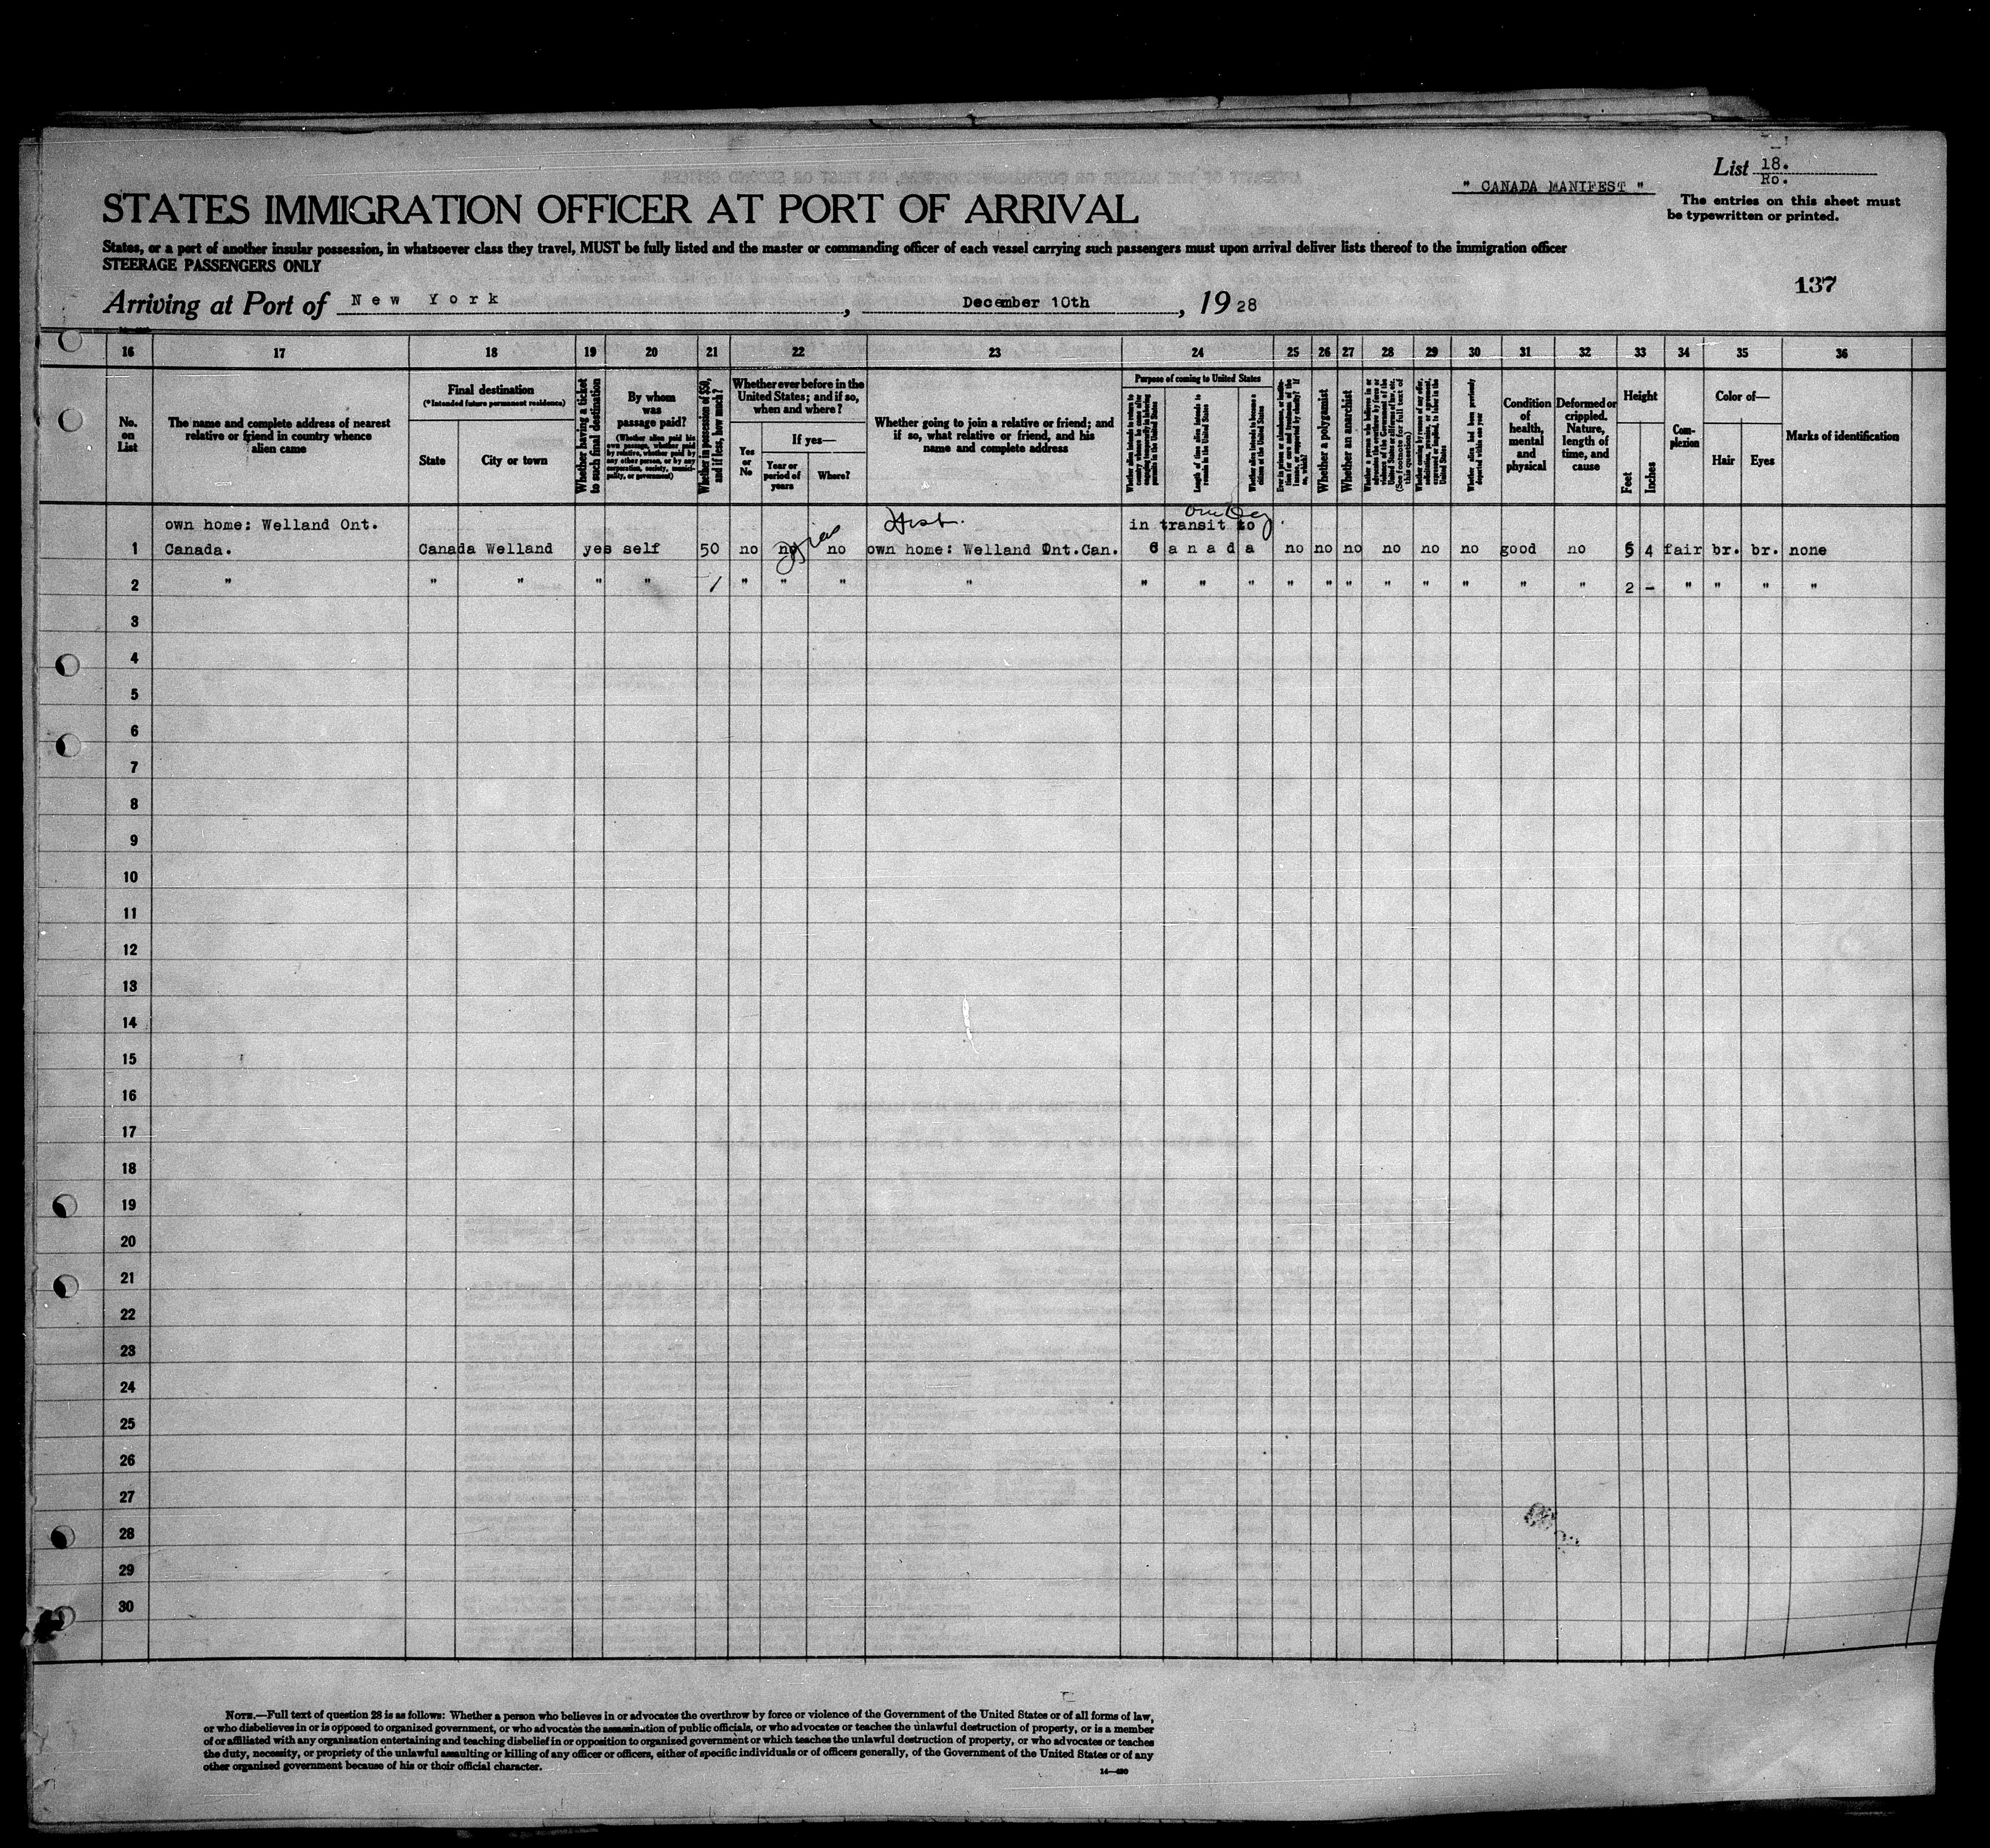 List 18.
Ro.
" CANADA MANIFEST "
The entries on this sheet must
be typewritten or printed.
STATES IMMIGRATION OFFICER AT PORT OF ARRIVAL
States, or a port of another insular possession, in whatsoever class they travel, MUST be fully listed and the master or commanding officer of each vessel carrying such passengers must upon arrival deliver lists thereof to the immigration officer
STEERAGE PASSENGERS ONLY
137
Arriving at Port of New York, December 10th, 1928
16 17 18 19 20 21 22 23 24 25 26 27 28 29 30 31 32 33 34 35 36
No.
on
List
The name and complete address of nearest
relative or friend in country whence
alien came
Final destination
(*Intended future permanent residence)
State
City or town
Whether having a ticket
to such final destination
By whom
was
passage paid?
(Whether alien paid his
own passage, whether paid
by relative, whether paid by
any other person, or by any
corporation, society, munici-
pality, or government)
Whether in possession of $50,
and if less, how much?
Whether ever before in the
United States; and if so,
when and where?
Yes
or
No
If yes—
Year or
period of
years
Where?
Whether going to join a relative or friend; and
if so, what relative or friend, and his
name and complete address
Purpose of coming to United States
Whether alien intends to return to
country whence he came after
engaging temporarily in laboring
pursuits in the United States
Length of time alien intends to
remain in the United States
Whether alien intends to become a
citizen of the United States
Whether a polygamist
Whether an anarchist
Whether alien had been previously
deported within one year
Condition
of
health,
mental
and
physical
Deformed or
crippled.
Nature,
length of
time, and
cause
Height
Feet
Inches
Com-
plexion
Color of—
Hair
Eyes
Marks of identification
own home: Welland Ont. in transit to
1 Canada. Canada Welland yes self 50 no no no own home: Welland Ont.Can. Canada no no no no no no good no 5 4 fair br. br. none
2 " " " " " / " " " " " " " " " " " " " " " 2 - " " " "
3
4
5
6
7
8
9
10
11
12
13
14
15
16
17
18
19
20
21
22
23
24
25
26
27
28
29
30
NOTE.—Full text of question 28 is as follows: Whether a person who believes in or advocates the overthrow by force or violence of the Government of the United States or of all forms of law,
or who disbelieves in or is opposed to organized government, or who advocates the assassination of public officials, or who advocates or teaches the unlawful destruction of property, or is a member
of or affiliated with any organization entertaining and teaching disbelief in or opposition to organized government or which teaches the unlawful destruction of property, or who advocates or teaches
the duty, necessity, or propriety of the unlawful assaulting or killing of any officer or officers, either of specific individuals or of officers generally, of the Government of the United States or of any
other organized government because of his or their official character.
14—490